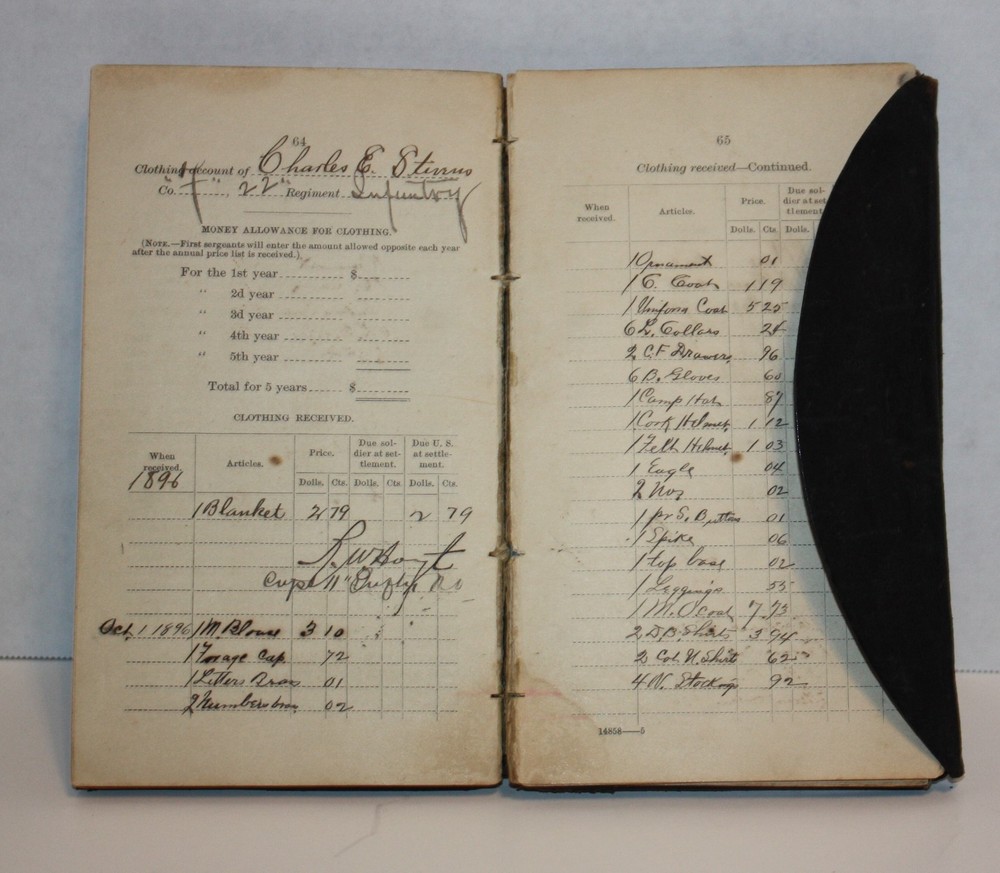 64
Clothing account of Charles E. Stivns
Co. "F", 22" Regiment Infantry
MONEY ALLOWANCE FOR CLOTHING.
(NOTE.—First sergeants will enter the amount allowed opposite each year
after the annual price list is received.)
For the 1st year $
" 2d year
" 3d year
" 4th year
" 5th year
Total for 5 years $
CLOTHING RECEIVED.
When received. Articles. Price. Due soldier at settlement. Due U. S. at settlement.
Dolls. Cts. Dolls. Cts. Dolls. Cts.
1896
1 Blanket 2 79 2 79
R. W. Hoyt
Capt 11" Infty
Oct. 1 1896 1 M. Blouse 3 10
1 Forage Cap 72
1 Letters Bras 01
2 Numbers 02
65
Clothing received—Continued.
When received. Articles. Price. Due soldier at settlement
Dolls. Cts. Dolls.
1 Ornament 01
1 C. Coat 1 19
1 Uniform Coat 5 25
6 L. Collars 24
2 C.F Drawers 96
6 B. Gloves 60
1 Camp Hat 87
1 Cork Helmet 1 12
1 Felt Helmet 1 03
1 Eagle 04
2 Nos 02
1 pr S. Buttons 01
1 Spike 06
1 top base 02
1 Leggings 55
1 M. O coat 7 73
2 D.B. Shirts 3 94
2 Col. U. Shirt 62
4 W. Stockings 92
14858——5